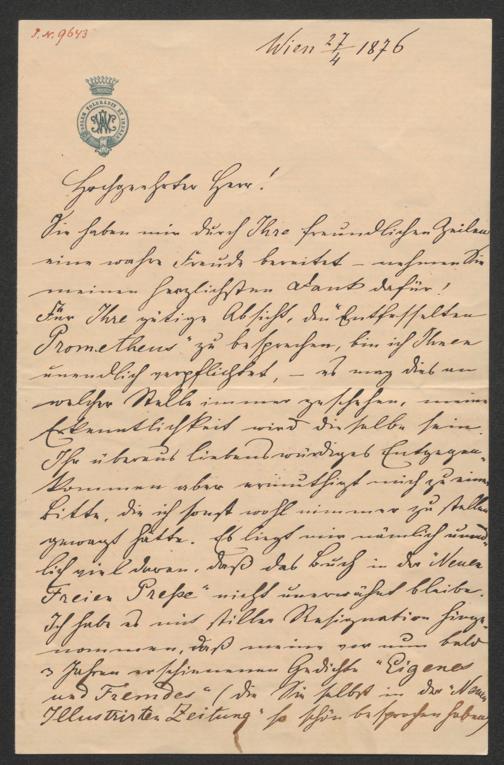 J. N. 9643
Wien 27/4 1876
Hochgeehrter Herr!
Sie haben mir durch Ihre freundlichen Zeilen
eine wahre Freude bereitet – nehmen Sie
meinen herzlichsten Dank dafür!
Für Ihre gütige Absicht, den "Entfesselten
Prometheus" zu besprechen, bin ich Ihnen
unendlich verpflichtet, – es mag dies an
welcher Stelle immer geschehen, meine
Erkenntlichkeit wird dieselbe sein.
Ihr überaus liebenswürdiges Entgegen-
kommen aber ermuthigt mich zu einer
Bitte, die ich sonst wohl nimmer zu stellen
gewagt hätte. Es liegt mir nämlich unend-
lich viel daran, daß das Buch in der "Neuen
Freien Presse" nicht unerwähnt bleibe.
Ich habe es mit stiller Resignation hinge-
nommen, daß meine vor nun bald
3 Jahren erschienenen Gedichte "Eigenes
und Fremdes" (die Sie selbst in der "Neuen
Illustrirten Zeitung" so schön besprochen haben)